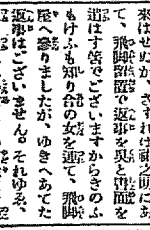 来はせぬか、さすれば神之明にあ
て、飛脚留置で返事を異と書面を
遣はす筈でございますからきのふ
もけふも知り合の女を連て、飛脚
屋へ參りましたが、ゆきへあてた
返事はございません。それゆゑ、